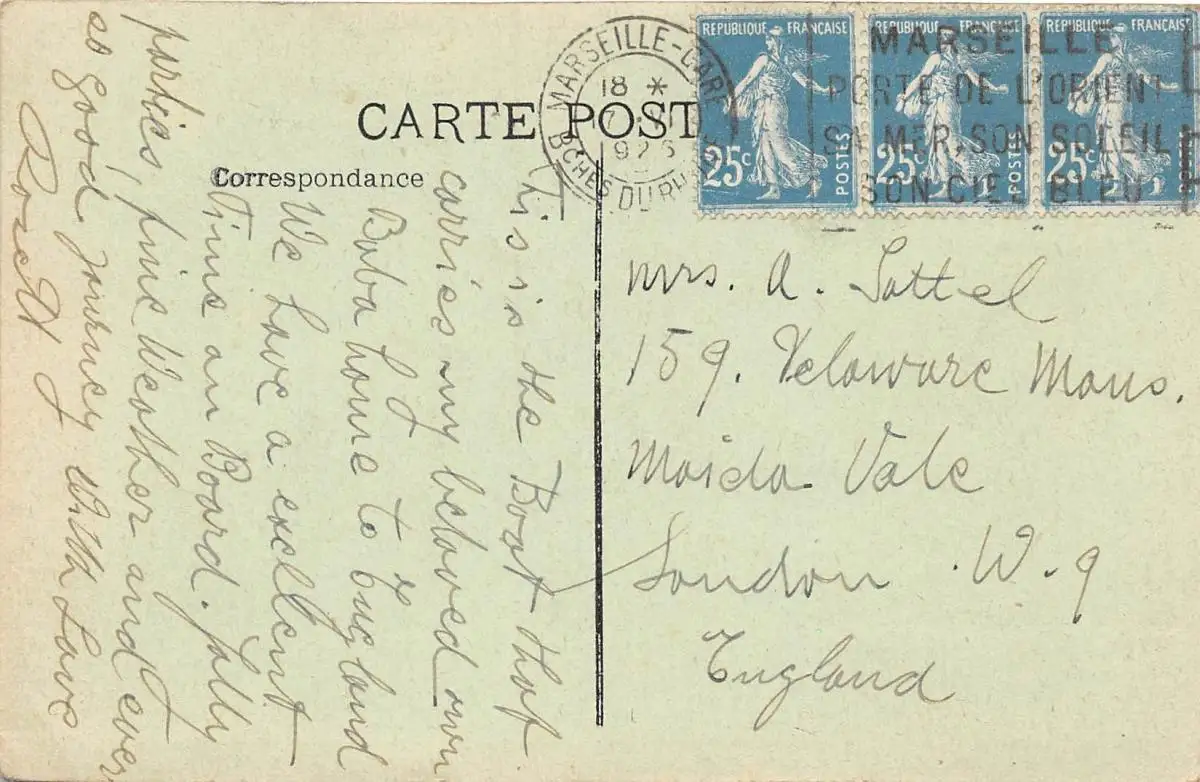 CARTE POST
Correspondance
MARSEILLE-GARE
18 *
7
192
BCHES DU RH
REPUBLIQUE FRANÇAISE
25c
POSTES
REPUBLIQUE FRANÇAISE
25c
POSTES
REPUBLIQUE FRANÇAISE
25c
MARSEILLE
PORTE DE L'ORIENT
SA MER, SON SOLEIL
SON CIEL BLEU
This is the Boat that
carries my beloved own
Baba home to England
We have a excellent
Time on Board. Jolly
parties, fine Weather and ever
so good Journey With Love
Mrs. A. Sottel
159. Delaware Mans.
Maida Vale
London W.9
England